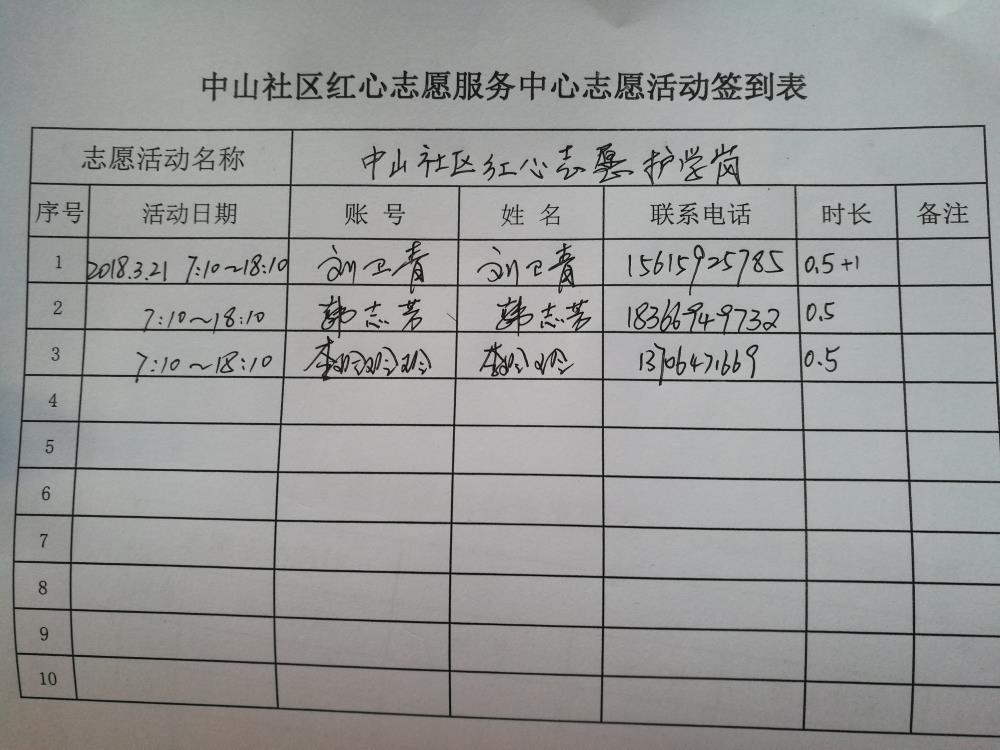 中山社区红心志愿服务中心志愿活动签到表
志愿活动名称 中山社区红心志愿护学岗
序号 活动日期 账号 姓名 联系电话 时长 备注
1 2018.3.21 7:10~18:10 刘卫青 刘卫青 15615925785 0.5+1
2 7:10~18:10 韩志芳 韩志芳 18366949732 0.5
3 7:10~18:10 李玲玲玲 李玲玲 0.5
4
5
6
7
8
9
10